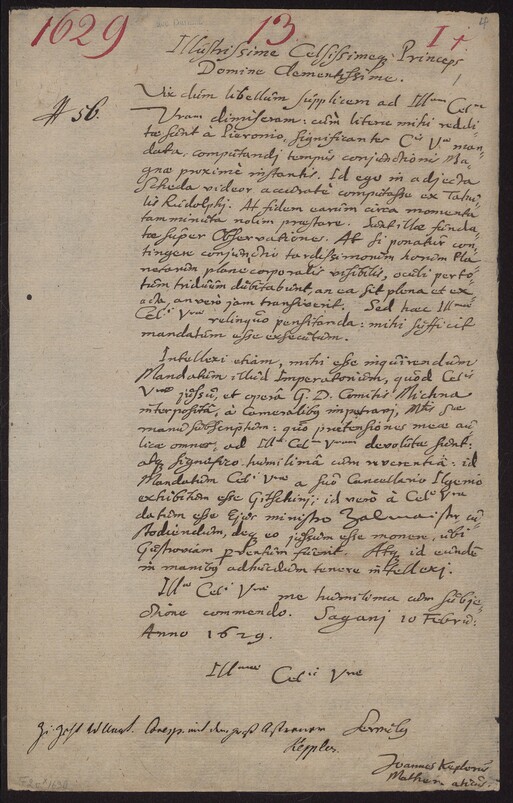 1629 13 I +
Illustrissime Celsissimeq; Princeps
Domine Clementissime.
# 56.
Vix dum libellum supplicem ad Ill.mam Cel.nem
Vram dimiseram: cum literæ mihi reddi-
tæ sunt à Pieronio, significantes C.is V.ræ man-
data, computandj tempus conjunctionis Ma-
gnæ proximè instantis. Id ego in adjecta
scheda videor accuratè computasse ex Tabu-
lis Rudolphj. At fidem earum circa momenta
tam minuta nolim præstare. Sunt illæ funda-
tæ super Observationes. At si ponatur con-
tingere conjunctio tardissimorum horum Pla-
netarum planè corporalis visibilis, oculi per to-
tum triduum dubitabunt, an ea sit plena et ex-
acta, an verò jam transiverit. Sed hæc Ill.mæ
Cel.ni Vræ relinquo pensitanda: mihi sufficit
mandatum esse executum.
Intellexi etiam, mihi esse inquirendum
Mandatum illud Imperatorium, quod Cel.is
Vræ jussu, et operâ G. D. Comitis Michna
interpositâ, à Cameralibus impetravj, M.tis Suæ
manu subscriptum: quo prætensiones meæ au-
licæ omnes, ad Ill.am Cel.nem Vram devolutæ sunt:
atq; significo humilimâ cum reverentiâ: id
Mandatum Cel.ni Vræ a suo Cancellario Ilgenio
exhibitum esse Gitschinj; id verò à Cel.ne Vra
datum esse Ejus ministro Zalmaister cu-
stodiendum, deq; eo jussum esse monere, ubi
Gustroviam perventum fuerit. Atq; id eundem
in manibus adhucdum tenere intellexj.
Ill.mæ Cel.ni Vræ me humilima cum subje-
ctione commendo. Saganj 10 Febru:
Anno 1629.
Ill.mæ Cel.ni Vræ
Corresp. mit dem
Keppler
Joannes Keplerus
Mathematicus.